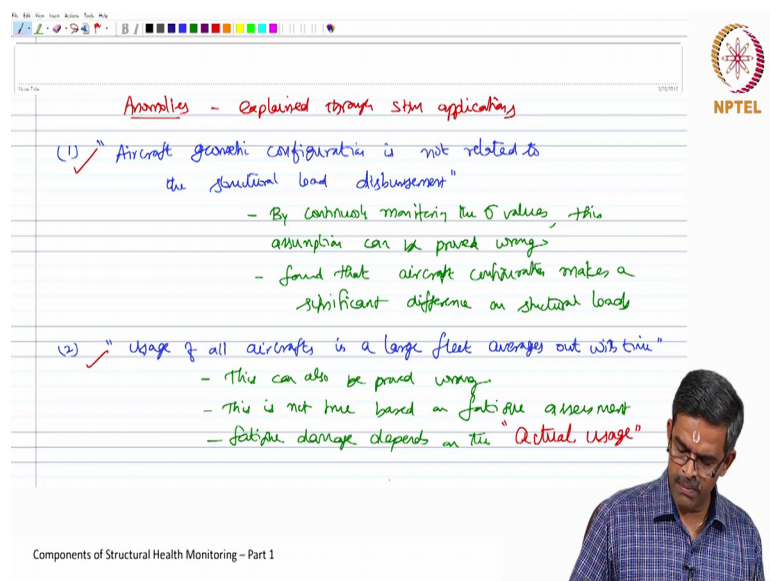 File Edit View Insert Actions Tools Help
NPTEL
Note Title
Anomolies - explained through SHM applications
(1) "Aircraft geometric configuration is not related to
the structural load disbursement"
- By continuously monitoring the σ values, this
assumption can be proved wrong
- found that aircraft configuration makes a
significant difference on structural loads
(2) "Usage of all aircrafts in a large fleet averages out with time"
- This can also be proved wrong
- This is not true based on fatigue assessment
- fatigue damage depends on the "Actual usage"
Components of Structural Health Monitoring – Part 1